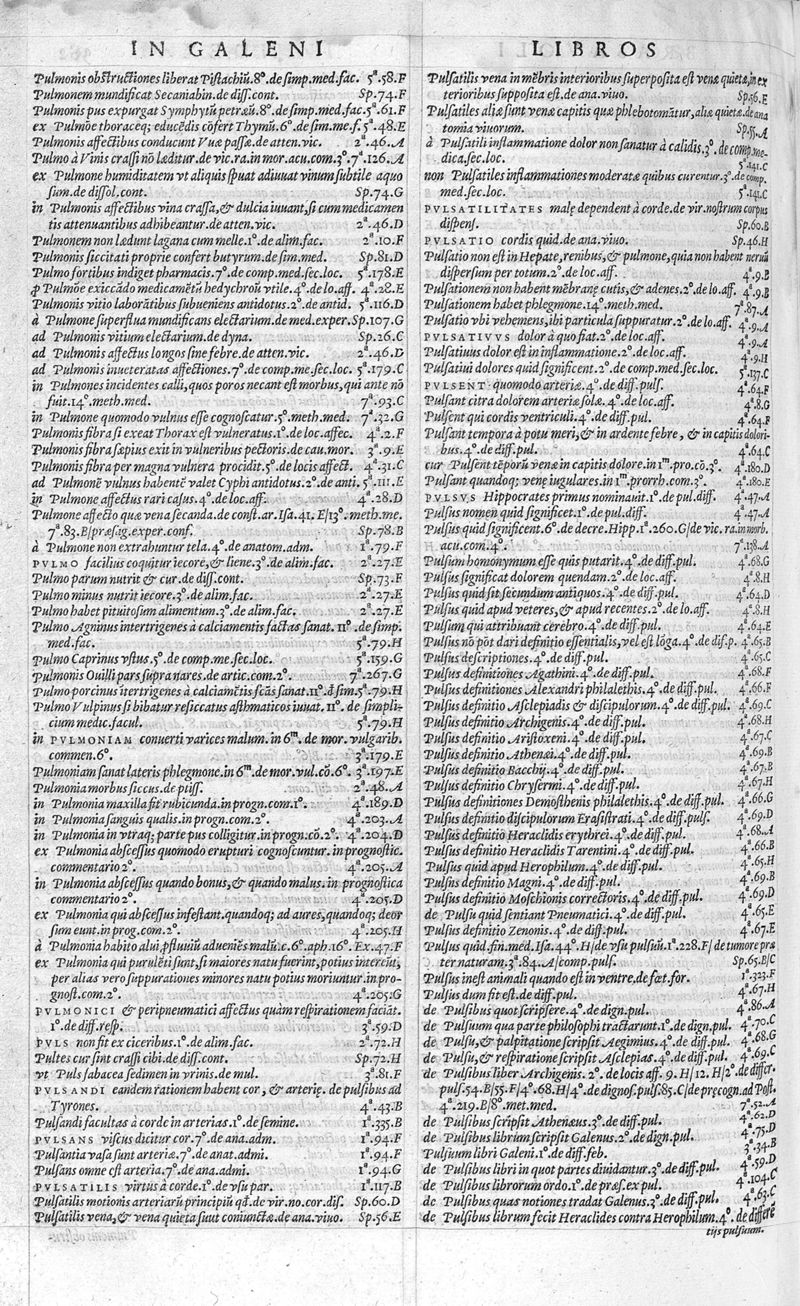 IN GALENI
Pulmonis obstructiones liberat Pistachiũ. 8°. de simp. med. fac. 5ª. 58. F
Pulmonem mundificat Secaniabin. de diss. cont. Sp. 74. F
Pulmonis pus expurgat Symphytũ petræũ. 8°. de simp. med. fac. 5ª. 61. F
ex Pulmõe thoraceq; educẽdis cõfert Thymũ. 6°. de sim. me. f. 5ª. 48. E
Pulmonis affectibus conducunt Vuæ passæ. de atten. vic. 2ª. 46. A
Pulmo à Vinis crassi nõ læditur. de vic. ra. in mor. acu. com. 3°. 7ª. 126. A
ex Pulmone humiditatem vt aliquis spuat adiuuat vinum subtile aquo
sum. de dissol. cont. Sp. 74. G
in Pulmonis affectibus vina crassa, & dulcia iuuant, si cum medicamen
tis attenuantibus adhibeantur. de atten. vic. 2ª. 46. D
Pulmonem non lædunt lagana cum melle. 1°. de alim. fac. 2ª. 10. F
Pulmonis siccitati proprie confert butyrum. de sim. med. Sp. 81. D
Pulmo fortibus indiget pharmacis. 7°. de comp. med. sec. loc. 5ª. 178. E
ꝓ Pulmõe exiccãdo medicamẽtũ hedychroũ vtile. 4°. de lo. aff. 4ª. 28. E
Pulmonis vitio laborãtibus subueniens antidotus. 2°. de antid. 5ª. 116. D
à Pulmone superflua mundificans electarium. de med. exper. Sp. 107. G
ad Pulmonis vitium electarium. de dyna. Sp. 26. C
ad Pulmonis affectus longos sine febre. de atten. vic. 2ª. 46. D
ad Pulmonis inueteratas affectiones. 7°. de comp. me. sec. loc. 5ª. 179. C
in Pulmones incidentes calli, quos poros necant est morbus, qui ante nõ
fuit. 14°. meth. med. 7ª. 93. C
in Pulmone quomodo vulnus esse cognoscatur. 5°. meth. med. 7ª. 32. G
Pulmonis fibra si exeat Thorax est vulneratus. 1°. de loc. affec. 4ª. 2. F
Pulmonis fibra sæpius exit in vulneribus pectoris. de cau. mor. 3ª. 9. E
Pulmonis fibra per magna vulnera procidit. 5°. de locis affect. 4ª. 31. C
ad Pulmonẽ vulnus habentẽ valet Cyphi antidotus. 2°. de anti. 5ª. 111. E
in Pulmone affectus rari casus. 4°. de loc. aff. 4ª. 28. D
Pulmone affecto quæ vena secanda. de const. ar. Isa. 41. E/13°. meth. me.
7ª. 83. B/præsag. exper. conf. Sp. 78. B
à Pulmone non extrahuntur tela. 4°. de anatom. adm. 1ª. 79. F
PVLMO facilius coquitur iecore, & liene. 3°. de alim. fac. 2ª. 27. E
Pulmo parum nutrit & cur. de diss. cont. Sp. 73. F
Pulmo minus nutrit iecore. 3°. de alim. fac. 2ª. 27. E
Pulmo habet pituitosum alimentum. 3°. de alim. fac. 2ª. 27. E
Pulmo Agninus intertrigenes à calciamentis factas sanat. 11°. de simp.
med. fac. 5ª. 79. H
Pulmo Caprinus vstus. 5°. de comp. me. sec. loc. 5ª. 159. G
Pulmonis Ouilli pars supra nares. de artic. com. 2°. 7ª. 267. G
Pulmo porcinus itertrigenes à calciamẽtis fcãs sanat. 11°. d sim. 5ª. 79. H
Pulmo Vulpinus si bibatur resiccatus asthmaticos iuuat. 11°. de simpli-
cium medic. facul. 5ª. 79. H
in PVLMONIAM conuerti varices malum. in 6ᵐ. de mor. vulgarib.
commen. 6°. 3ª. 179. E
Pulmoniam sanat lateris phlegmone. in 6ᵐ. de mor. vul. cõ. 6°. 3ª. 197. E
Pulmonia morbus siccus. de ptiss. 2ª. 48. A
in Pulmonia maxilla fit rubicunda. in progn. com. 1°. 4ª. 189. D
in Pulmonia sanguis qualis. in progn. com. 2°. 4ª. 203. A
in Pulmonia in vtraq; parte pus colligitur. in progn. cõ. 2°. 4ª. 204. D
ex Pulmonia abscessus quomodo erupturi cognoscuntur. in prognostic.
commentario 2°. 4ª. 205. A
in Pulmonia abscessus quando bonus, & quando malus. in prognostica
commentario 2°. 4ª. 205. D
ex Pulmonia qui abscessus infestant. quandoq; ad aures, quandoq; deor
sum eunt. in prog. com. 2°. 4ª. 205. H
à Pulmonia habito alui, pfluuiũ adueniẽs malũ. c. 6°. aph. 16°. Ex. 47. F
ex Pulmonia qui purulẽti sunt, si maiores natu fuerint, potius intereũt,
per alias vero suppurationes minores natu potius moriuntur. in pro-
gnost. com. 2°. 4ª. 205. G
PVLMONICI & peripneumatici affectus quàm respirationem faciãt.
1°. de diff. resp. 3ª. 59. D
PVLS non fit ex ciceribus. 1°. de alim. fac. 2ª. 72. H
Pultes cur sint crassi cibi. de diss. cont. Sp. 72. H
vt Puls fabacea sedimen in vrinis. de mul. 3ª. 81. F
PVLSANDI eandem rationem habent cor, & arterię. de pulsibus ad
Tyrones. 4ª. 43. B
Pulsandi facultas à corde in arterias. 1°. de semine. 1ª. 335. B
PVLSANS viscus dicitur cor. 7°. de ana. adm. 1ª. 94. F
Pulsantia vasa sunt arteriæ. 7°. de anat. admi. 1ª. 94. F
Pulsans omne est arteria. 7°. de ana. admi. 1ª. 94. G
PVLSATILIS virtus à corde. 1°. de vsu par. 1ª. 117. B
Pulsatilis motionis arteriarũ principiũ qd. de vir. no. cor. dis. Sp. 60. D
Pulsatilis vena, & vena quieta sunt coniunctæ. de ana. viuo. Sp. 56. E
LIBROS
Pulsatilis vena in mẽbris interioribus superposita est venæ quietæ, in ex
terioribus supposita est. de ana. viuo. Sp. 56. E
Pulsatiles aliæ sunt venæ capitis quæ phlebotomãtur, aliæ quietæ. de ana
tomia viuorum. Sp. 55. A
à Pulsatili inflammatione dolor non sanatur à calidis. 3°. de comp. me-
dica. sec. loc. 5ª. 141. C
non Pulsatiles inflammationes moderatæ quibus curentur. 3°. de comp.
med. sec. loc. 5ª. 141. C
PVLSATILITATES malę dependent à corde. de vir. nostrum corpus
dispens. Sp. 60. B
PVLSATIO cordis quid. de ana. viuo. Sp. 46. H
Pulsatio non est in Hepate, renibus, & pulmone, quia non habent neruũ
dispersum per totum. 2°. de loc. aff. 4ª. 9. B
Pulsationem non habent mẽbranę cutis, & adenes. 2°. de lo. aff. 4ª. 9. B
Pulsationem habet phlegmone. 14°. meth. med. 7ª. 87. A
Pulsatio vbi vehemens, ibi particula suppuratur. 2°. de lo. aff. 4ª. 9. A
PVLSATIVVS dolor à quo fiat. 2°. de loc. aff. 4ª. 9. A
Pulsatiuus dolor est in inflammatione. 2°. de loc. aff. 4ª. 9. H
Pulsatiui dolores quid significent. 2°. de comp. med. sec. loc. 5ª. 137. C
PVLSENT quomodo arteriæ. 4°. de diff. puls. 4ª. 64. F
Pulsant citra dolorem arteriæ solæ. 4°. de loc. aff. 4ª. 8. G
Pulsent qui cordis ventriculi. 4°. de diff. pul. 4ª. 64. F
Pulsant tempora à potu meri, & in ardente febre, & in capitis dolori-
bus. 4°. de diff. pul. 4ª. 64. C
cur Pulsent tẽporũ venæ in capitis dolore. in 1ᵐ. pro. cõ. 3°. 4ª. 180. D
Pulsant quandoq; venę iugulares. in 1ᵐ. prorrh. com. 3°. 4ª. 180. E
PVLSVS Hippocrates primus nominauit. 1°. de pul. diff. 4ª. 47. A
Pulsus nomen quid significet. 1°. de pul. diff. 4ª. 47. A
Pulsus quid significent. 6°. de decre. Hipp. 1ª. 260. G/de vic. ra. in morb.
acu. com. 4°. 7ª. 138. A
Pulsum homonymum esse quis putarit. 4°. de diff. pul. 4ª. 68. G
Pulsus significat dolorem quendam. 2°. de loc. aff. 4ª. 8. H
Pulsus quid sit secundum antiquos. 4°. de diff. pul. 4ª. 64. D
Pulsus quid apud veteres, & apud recentes. 2°. de lo. aff. 4ª. 8. H
Pulsum qui attribuant cerebro. 4°. de diff. pul. 4ª. 64. E
Pulsus nõ põt dari definitio essentialis, vel est lõga. 4°. de dif. p. 4ª. 65. B
Pulsus descriptiones. 4°. de diff. pul. 4ª. 65. C
Pulsus definitiones Agathini. 4°. de diff. pul. 4ª. 68. F
Pulsus definitiones Alexandri philalethis. 4°. de diff. pul. 4ª. 66. F
Pulsus definitio Asclepiadis & discipulorum. 4°. de diff. pul. 4ª. 69. C
Pulsus definitio Archigenis. 4°. de diff. pul. 4ª. 68. H
Pulsus definitio Aristoxeni. 4°. de diff. pul. 4ª. 67. C
Pulsus definitio Athenæi. 4°. de diff. pul. 4ª. 69. B
Pulsus definitio Bacchij. 4°. de diff. pul. 4ª. 67. B
Pulsus definitio Chrysermi. 4°. de diff. pul. 4ª. 67. H
Pulsus definitiones Demosthenis philalethis. 4°. de diff. pul. 4ª. 66. G
Pulsus definitio discipulorum Erasistrati. 4°. de diff. puls. 4ª. 69. D
Pulsus definitio Heraclidis erythrei. 4°. de diff. pul. 4ª. 68. A
Pulsus definitio Heraclidis Tarentini. 4°. de diff. pul. 4ª. 66. B
Pulsus quid apud Herophilum. 4°. de diff. pul. 4ª. 65. H
Pulsus definitio Magni. 4°. de diff. pul. 4ª. 69. B
Pulsus definitio Moschionis correctoris. 4°. de diff. pul. 4ª. 69. D
de Pulsu quid sentiant Pneumatici. 4°. de diff. pul. 4ª. 65. E
Pulsus definitio Zenonis. 4°. de diff. pul. 4ª. 67. E
Pulsus quid. fin. med. Isa. 44°. H/de vsu pulsuũ. 1ª. 228. F/de tumore præ
ter naturam. 3ª. 84. A/comp. puls. Sp. 65. B/C
Pulsus inest animali quando est in ventre. de fœt. for. 1ª. 323. F
Pulsus dum fit est. de diff. pul. 4ª. 67. H
de Pulsibus quot scripsere. 4°. de dign. pul. 4ª. 86. A
de Pulsuum qua parte philosophi tractarunt. 1°. de dign. pul. 4ª. 70. C
de Pulsu, & palpitatione scripsit Aegimius. 4°. de diff. pul. 4ª. 68. G
de Pulsu, & respiratione scripsit Asclepias. 4°. de diff. pul. 4ª. 69. C
de Pulsibus liber Archigenis. 2°. de locis aff. 9. H/12. H/2°. de differ.
pul. 54. B/55. F/4ª. 68. H/4°. de dignos. puls. 85. C/de pręcogn. ad Post.
4ª. 219. B/8°. met. med. 7ª. 52. A
de Pulsibus scripsit Athenæus. 3°. de diff. pul. 4ª. 62. D
de Pulsibus librum scripsit Galenus. 2°. de dign. pul. 4ª. 75. D
Pulsuum libri Galeni. 1°. de diff. feb. 3ª. 34. B
de Pulsibus libri in quot partes diuidantur. 3°. de diff. pul. 4ª. 59. D
de Pulsibus librorum ordo. 1°. de præs. ex pul. 4ª. 104. C
de Pulsibus quas notiones tradat Galenus. 3°. de diff. pul. 4ª. 63. C
de Pulsibus librum fecit Heraclides contra Herophilum. 4°. de differẽ
tijs pulsuum.